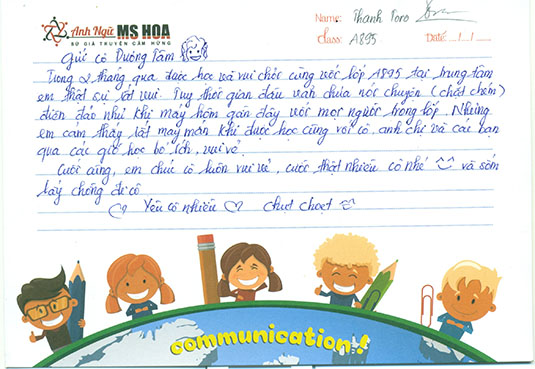 Anh Ngữ MS HOA
SỨ GIẢ TRUYỀN CẢM HỨNG
Name: Thanh Toro
Class: A895
Date: / /
Gửi cô Dương Tâm
Trong 2 tháng qua được học và vui chơi cùng với lớp A895 tại trung tâm
em thật sự rất vui. Tuy thời gian đầu vẫn chưa nói chuyện (chặt chém)
điên đảo như khi mấy hôm gần đây với mọi người trong lớp. Nhưng
em cảm thấy rất may mắn khi được học cùng với cô, anh chị và các bạn
qua các giờ học bổ ích, vui vẻ.
Cuối cùng, em chúc cô luôn vui vẻ, cười thật nhiều cô nhé và sớm
lấy chồng đi cô
Yêu cô nhiều chụt choẹt
communication!